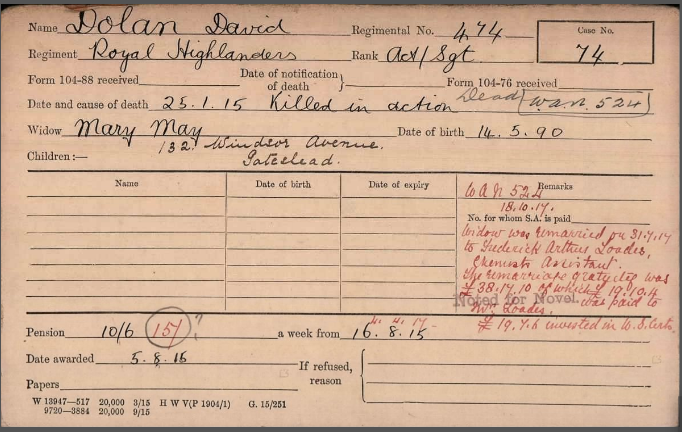 Name Dolan David Regimental No. 474 Case No.
Regiment Royal Highlanders Rank Act/Sgt 74
Form 104-88 received Date of notification of death } Form 104-76 received
Date and cause of death 25.1.15 Killed in action Dead (W.A.N. 524)
Widow Mary May Date of birth 14.5.90
132 Windsor Avenue.
Children:— Gateshead.
Name Date of birth Date of expiry Remarks
W.A.N 524
18.10.17.
No. for whom S.A. is paid
Widow was remarried on 31.7.17
to Frederick Arthur Loades,
Chemists Assistant.
The remarriage gratuity was
£38.17.10 of which £19.10.4
Noted for Novel. was paid to
Mrs Loades.
£19.7.6 invested in W.S. Certs.
Pension 10/6 (15/) ? a week from 16.8.15 4.4.17
Date awarded 5.8.15
If refused, reason
Papers
W 13947—517 20,000 3/15 H W V(P 1904/1) G. 15/251
9720—3884 20,000 9/15